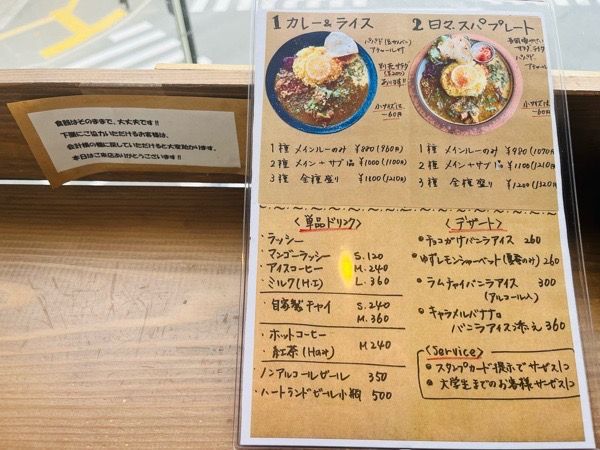 食器はそのままで、大丈夫です!!
下膳にご協力いただけるお客様は、
会計横の棚に戻していただけると大変助かります。
本日はご来店ありがとうございます!!
1 カレー&ライス
アチャール付
別売サラダ
(¥200)
あります!
小サイズは
-60円
1種 メインルーのみ ¥880(960円)
2種 メイン+サブ1品 ¥1000(1100円)
3種 全種盛り ¥1100(1210円)
2 日々スパプレート
アチャール
小サイズは
-60円
1種 メインルーのみ ¥980(1070円)
2種 メイン+サブ1品 ¥1100(1210円)
3種 全種盛り ¥1200(1320円)
<単品ドリンク>
・ラッシー
・マンゴーラッシー S.120
・アイスコーヒー M.240
・ミルク(H.I) L.360
・自家製チャイ S.240
M.360
・ホットコーヒー
・紅茶(Hのみ) M.240
・ノンアルコールビール 350
・ハートランドビール小瓶 500
<デザート>
・チョコがけバニラアイス 260
・ゆずレモンシャーベット(夏季のみ) 260
・ラムチャイバニラアイス 300
(アルコール入)
・キャラメルバナナ
バニラアイス添え 360
<Service>
スタンプカード提示でサービス1コ
大学生までのお客様サービス1コ